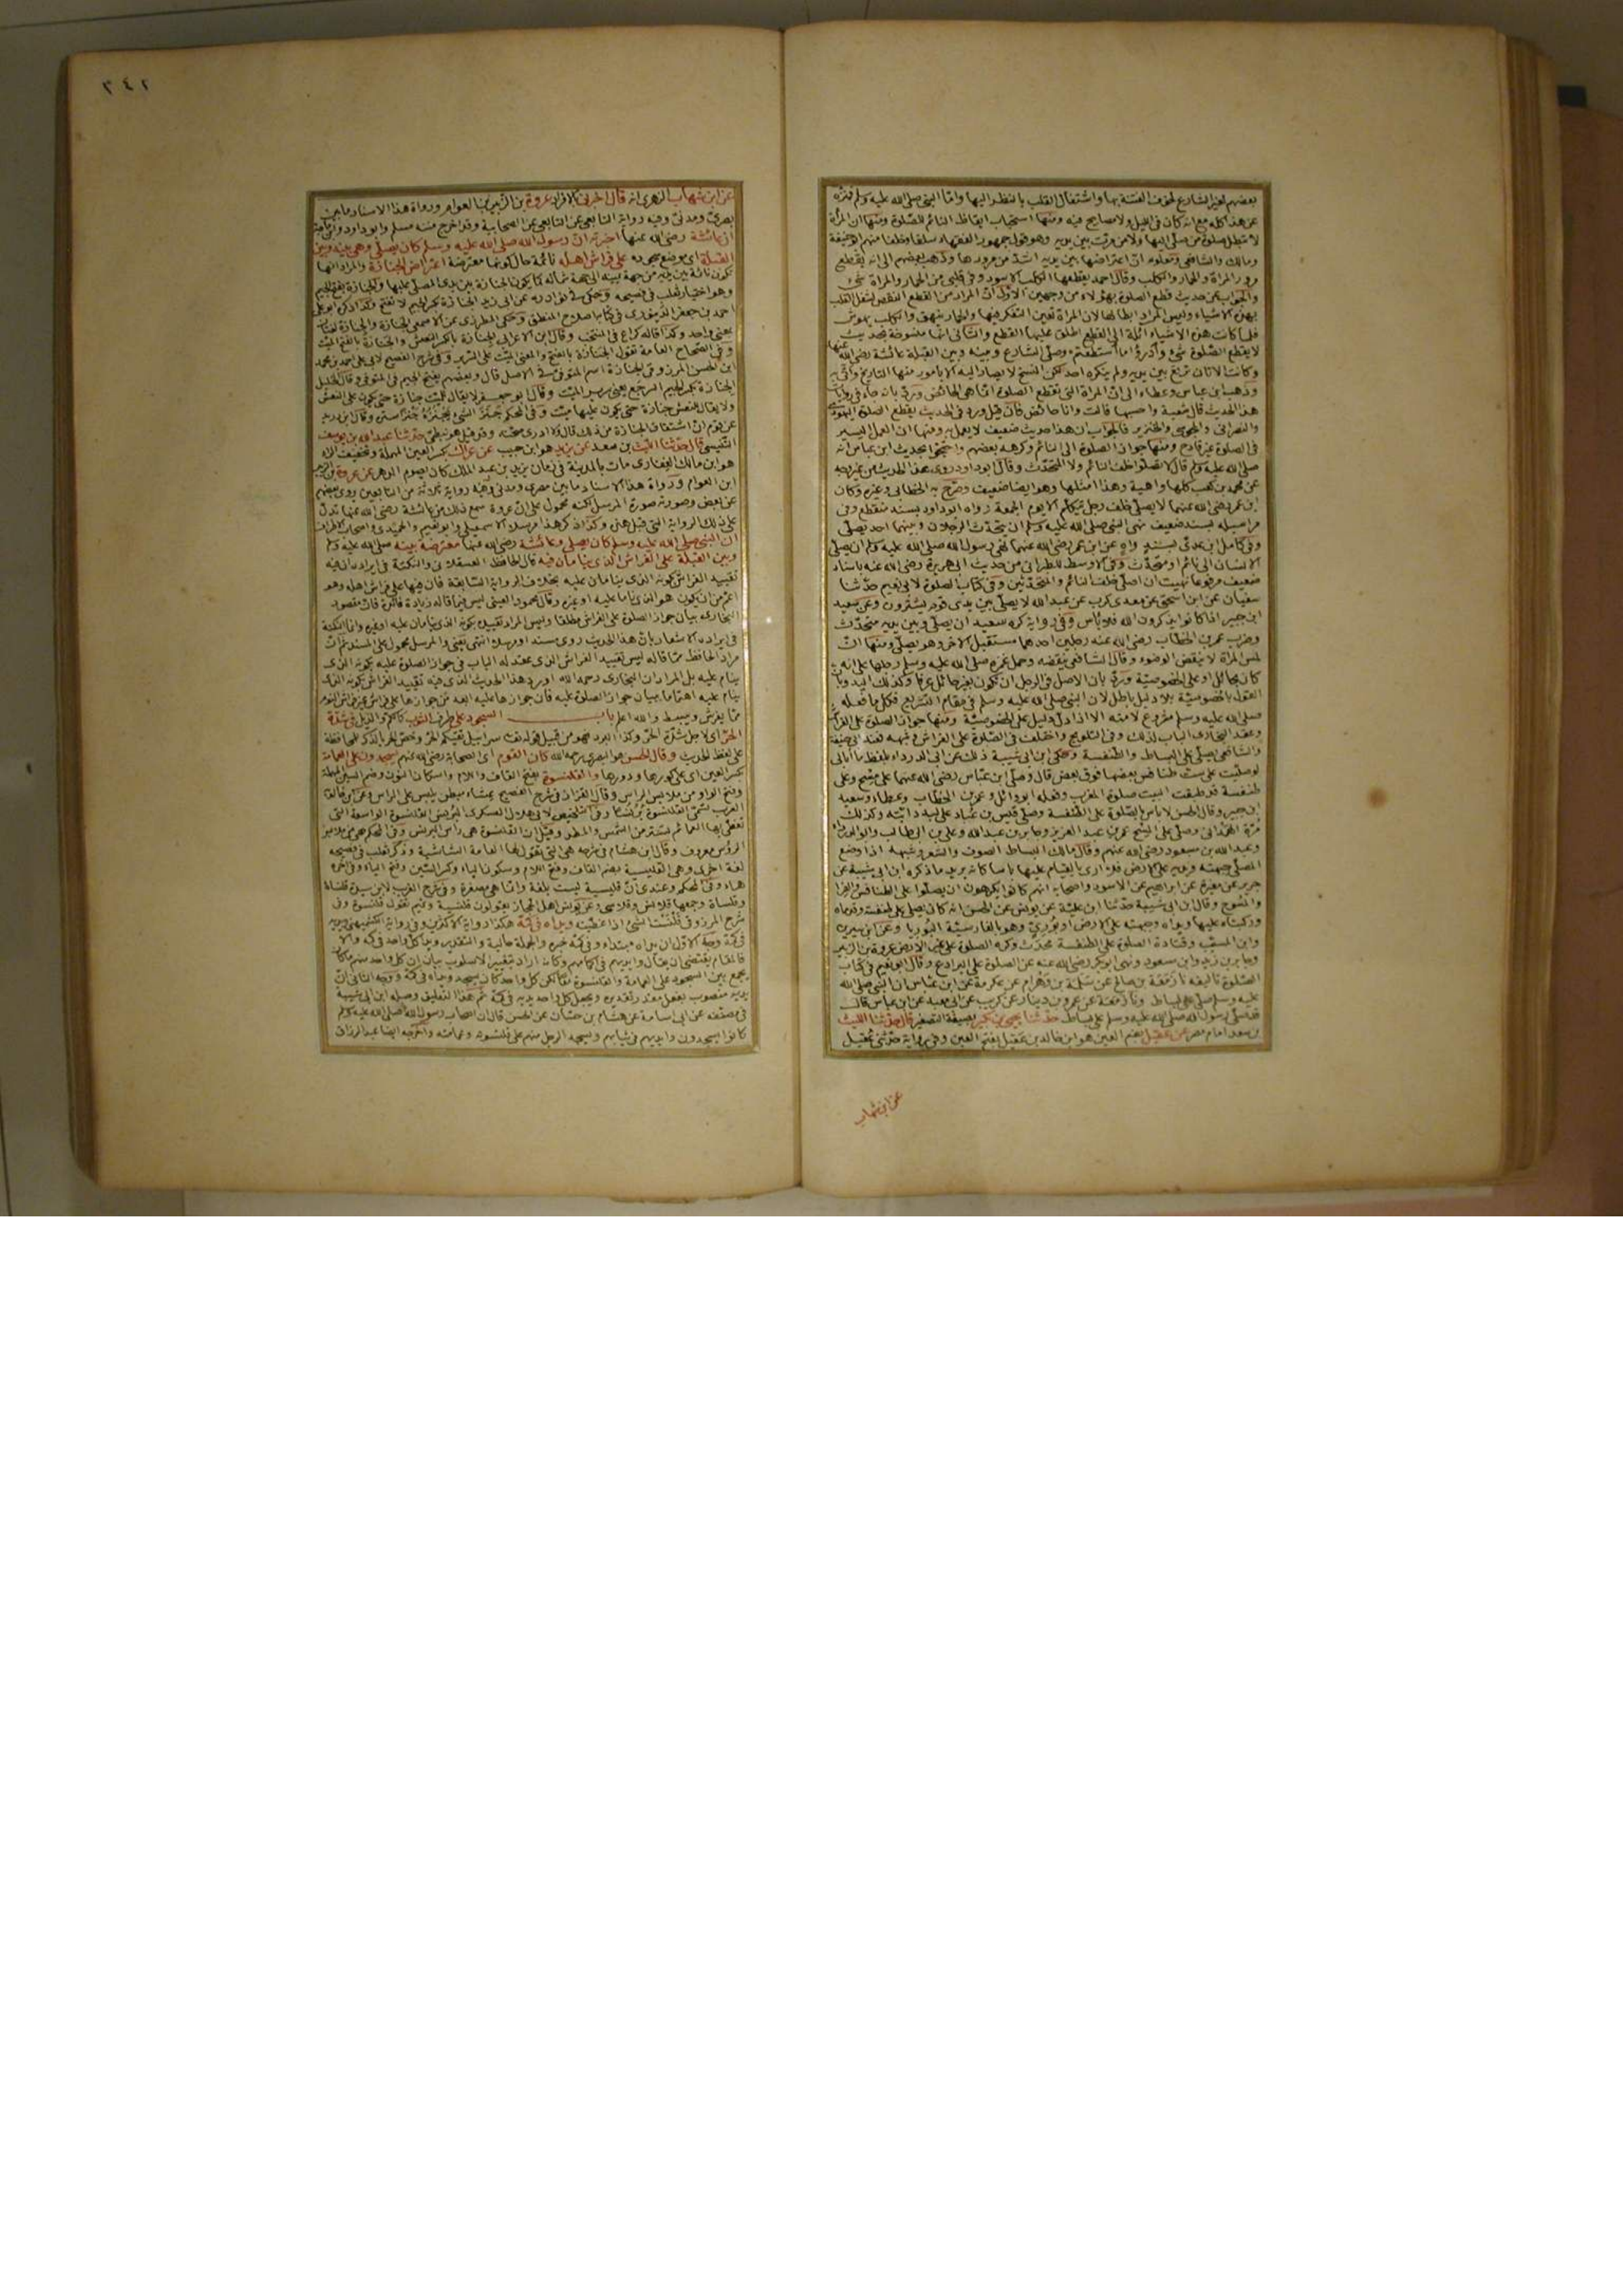 بعضهم لغير الشارع لخوف الفتنة بها واشتغال القلب بالنظر اليها واما النبى صلى الله عليه وسلم فمنزه
عن هذا كله مع انه كان فى الليل ولا مصابيح فيه ومنها استحباب ايقاظ النائم للصلوة ومنها ان المرأة
لا تبطل صلوة من صلى اليها ولا من مرت بين يديه وهو قول جمهور الفقهاء سلفا وخلفا منهم ابو حنيفة
ومالك والشافعى ومعلوم ان اعتراضها بين يديه اشد من مرورها وذهب بعضهم الى انه يقطع
مرور المرأة والحمار والكلب وقال احمد يقطعها الكلب الاسود وفى قلبى من الحمار والمرأة شئ
والجواب عن حديث قطع الصلوة بهؤلاء من وجهين الاول ان المراد من القطع النقص لشغل القلب
بهذه الاشياء وليس المراد ابطالها لان المرأة تغير الفكر فيها والحمار ينهق والكلب يهوش
فلما كانت هذه الاشياء آئلة الى القطع اطلق عليها القطع والثانى انها منسوخة بحديث
لا يقطع الصلوة شئ وادرؤا ما استطعتم وصلى الشارع وبينه وبين القبلة عائشة رضى الله عنها
وكانت الاتان ترتع بين يديه ولم ينكره احد لكن النسخ لا يصار اليه الا بامور منها التاريخ وانى به
وذهب ابن عباس وعطاء الى ان المرأة التى تقطع الصلوة انما هى الحائض ورد بانه جاء فى روايات
هذا الحديث قال شعبة واحسبها قالت وانا حائض فان قيل ورد فى الحديث يقطع الصلوة اليهودى
والنصرانى والمجوسى والخنزير فالجواب ان هذا حديث ضعيف لا يعمل به ومنها ان العمل اليسير
فى الصلوة غير قادح ومنها جواز الصلوة الى النائم وكرهه بعضهم واحتجوا بحديث ابن عباس انه
صلى الله عليه وسلم قال لا تصلوا خلف النائم ولا المتحدث وقال ابو داود روى هذا الحديث من غير وجه
عن محمد بن كعب كلها واهية وهذا امثلها وهو ايضا ضعيف وصرح به الخطابى وغيره وكان
ابن عمر رضى الله عنهما لا يصلى خلف رجل يتكلم الا يوم الجمعة رواه ابو داود بسند منقطع وفى
مراسيله بسند ضعيف نهى النبى صلى الله عليه وسلم ان يتحدث الرجلان وبينهما احد يصلى
وفى كامل ابن عدى بسند واه عن ابن عمر رضى الله عنهما نهى رسول الله صلى الله عليه وسلم ان يصلى
الانسان الى نائم او متحدث وفى الاوسط للطبرانى من حديث ابى هريرة رضى الله عنه باسناد
ضعيف مرفوعا نهيت ان اصلى خلف النائم والمتحدثين وفى كتاب الصلوة لابى نعيم حدثنا
سفيان عن ابن اسحق عن معدى كرب عن عبد الله لا يصلى بين يدى قوم يمترون وعن سعيد
ابن جبير اذا كانوا يذكرون الله فلا بأس وفى رواية كره سعيد ان يصلى وبين يديه متحدث
وضرب عمر بن الخطاب رضى الله عنه رجلين احدهما مستقبل الآخر وهو يصلى ومنها ان
لمس المرأة لا ينقض الوضوء وقال الشافعى ينقضه وحمل غمزه صلى الله عليه وسلم رجلها على انه
كان بحائل او على الخصوصية ورد بان الاصل فى الرجل ان يكون بغير حائل عرفا وكذلك اليد وبان
القول بالخصوصية بلا دليل باطل لان النبى صلى الله عليه وسلم فى مقام التشريع فكل ما فعله
صلى الله عليه وسلم مشروع لامته الا اذا دل دليل على الخصوصية ومنها جواز الصلوة على الفراش
وعقد البخارى الباب لذلك وفى التلويح واختلف فى الصلوة على الفراش وشبهه فعند ابى حنيفة
والشافعى يصلى على البساط والطنفسة وحكى ابن ابى شيبة ذلك عن ابى الدرداء بلفظ ما ابالى
لو صليت على ست طنافس بعضها فوق بعض قال وصلى ابن عباس رضى الله عنهما على مسح وعلى
طنفسة قد طبقت البيت صلوة المغرب وفعله ابو وائل وعمر بن الخطاب وعطاء وسعيد
ابن جبير وقال الحسن لا بأس بالصلوة على الطنفسة وصلى قيس بن عباد على لبد دابته وكذلك
مرة الهمدانى وصلى على المسح عمر بن عبد العزيز وجابر بن عبد الله وعلى بن ابى طالب وابو الدرداء
وعبد الله بن مسعود رضى الله عنهم وقال مالك البساط الصوف والشعر وشبهه اذا وضع
المصلى جبهته ويديه على الارض فلا ارى بالقيام عليها بأسا كانه يريد ما ذكره ابن ابى شيبة عن
جرير عن مغيرة عن ابراهيم عن الاسود واصحابه انهم كانوا يكرهون ان يصلوا على الطنافس والفرا
والمسوح وقال ابن ابى شيبة حدثنا ابن علية عن يونس عن الحسن انه كان يصلى على طنفسة وقدماه
وركبتاه عليها ويداه وجبهته على الارض او بورى وهو بالفارسية البوريا وعن ابن سيرين
وابن المسيب وقتادة الصلوة على الطنفسة محدث وكره الصلوة على غير الارض عروة بن الزبير
وجابر بن زيد وابن مسعود ونهى ابو بكر رضى الله عنه عن الصلوة على البرادع وقال ابو نعيم فى كتاب
الصلوة تأليفه نا زمعة بن صالح عن سلمة بن وهرام عن عكرمة عن ابن عباس ان النبى صلى الله
عليه وسلم صلى على بساط ونا زمعة عن عمرو بن دينار عن كريب عن ابى معبد عن ابن عباس قال
قد صلى رسول الله صلى الله عليه وسلم على بساط حدثنا يحيى بن بكير بصيغة التصغير قال حدثنا الليث
بن سعد امام مصر عن عقيل بضم العين هو ابن خالد بن عقيل بفتح العين وفى رواية حدثنى عقيل
عن ابن شهاب
٢٤٢
عن ابن شهاب الزهرى انه قال اخبرنى بالافراد عروة بن الزبير بن العوام ورواة هذا الاسناد ما بين
بصرى ومدنى وفيه رواية التابعى عن التابعى عن الصحابية وقد اخرج متنه مسلم وابو داود وابن ماجة
ان عائشة رضى الله عنها اخبرته ان رسول الله صلى الله عليه وسلم كان يصلى وهى بينه وبين
القبلة اى موضع سجوده على فراش اهله نائمة حال كونها معترضة اعتراض الجنازة والمراد انها
تكون نائمة بين يديه من جهة يمينه الى جهة شماله كما يكون الجنازة بين يدى المصلى عليها والجنازة بفتح الجيم
وهو اختيار ثعلب فى فصيحه وحكى فى نوادره عن ابى زيد الجنازة بكسر الجيم لا تفتح وكذا ذكره ابو على
احمد بن جعفر الدينورى فى كتاب اصلاح المنطق وحكى المطرزى عن الاصمعى الجنازة والجنازة لغتان
بمعنى واحد وكذا قاله كراع فى المنتخب وقال ابن الاعرابى الجنازة بالكسر النعش والجنازة بالفتح الميت
وفى الصحاح العامة تقول الجنازة بالفتح والمعنى الميت على السرير وفى شرح الفصيح لابى على احمد بن محمد
ابن الحسن المرزوقى الجنازة اسم المتوفى فى الاصل قال وبعضهم بفتح الجيم فى المتوفى وقال الخليل
الجنازة بكسر الجيم السرجع يعنى سرير الميت وقال ابو جعفر لا يقال للميت جنازة حتى يكون على النعش
ولا يقال للنعش جنازة حتى يكون عليها ميت وفى المحكم جنز الشئ يجنزه جنزا ستره وقال ابن دريد
عن قوم ان اشتقاق الجنازة من ذلك قال ولا ادرى صحته وقد قيل هو نبطى حدثنا عبد الله بن يوسف
التنيسى قال حدثنا الليث بن سعد عن يزيد هو ابن حبيب عن عراك بكسر العين المهملة وتخفيف الراء
هو ابن مالك الغفارى مات بالمدينة فى زمان يزيد بن عبد الملك كان يصوم الدهر عن عروة بن الزبير
ابن العوام ورواة هذا الاسناد ما بين مصرى ومدنى وفيه رواية ثلاثة من التابعين روى بعضهم
عن بعض وصورته صورة المرسل لكنه محمول على ان عروة سمع ذلك من عائشة رضى الله عنها تدل
على ذلك الرواية التى قبل هذه وكذا ذكر هذا مرسلا الاسمعيلى وابو نعيم والحميدى واصحاب الاطراف
ان النبى صلى الله عليه وسلم كان يصلى وعائشة رضى الله عنها معترضة بينه صلى الله عليه وسلم
وبين القبلة على الفراش الذى ينامان فيه قال الحافظ العسقلانى والنكتة فى ايراده ان فيه
تقييد الفراش بكونه الذى ينامان عليه بخلاف الرواية السابقة فان فيها على فراش اهله وهو
اعم من ان يكون هو الذى ناما عليه او غيره وقال محمود العينى ليس فيما قاله زيادة فائدة فان مقصود
البخارى بيان جواز الصلوة على الفراش مطلقا وليس المراد تقييده بكونه الذى ينامان عليه او غيره وانما النكتة
فى ايراده الاشعار بان هذا الحديث روى مسندا ومرسلا انتهى يعنى والمرسل محمول على المسند ثم ان
مراد الحافظ مما قاله ليس تقييد الفراش الذى عقد له الباب فى جواز الصلوة عليه بكونه الذى
ينام عليه بل المراد ان البخارى رحمه الله اورد هذا الحديث الذى فيه تقييد الفراش بكونه الذى
ينام عليه اهتماما ببيان جواز الصلوة عليه فان جوازها عليه ابعد من جوازها على فراش غير فراش النوم
مما يفرش ويبسط والله اعلم باب السجود على طرف الثوب كالكم والذيل فى شدة
الحر اى لاجل شدة الحر وكذا البرد فهو من قبيل قوله تعالى سرابيل تقيكم الحر وخص الحر بالذكر للمحافظة
على لفظ الحديث وقال الحسن هو البصرى رحمه الله كان القوم اى الصحابة رضى الله عنهم يسجدون على العمامة
بكسر العين اى على كورها ودورها والقلنسوة بفتح القاف واللام واسكان النون وضم السين المهملة
وفتح الواو من ملابس الراس وقال القزاز فى شرح الفصيح غشاء مبطن يلبس على الراس وعن ابن خالويه
العرب تسمى القلنسوة برنسا وفى التلخيص لابى هلال العسكرى البرنس القلنسوة الواسعة التى
تغطى بها العمائم تستر من الشمس والمطر وقيل ان القلنسوة هى رأس البرنس وفى المحكم هى من ملابس
الرؤس معروف وقال ابن هشام فى شرحه هى التى تقول لها العامة الشاشية وذكر ثعلب فى فصيحه
لغة اخرى وهى القليسية بضم القاف وفتح اللام وسكون الياء وكسر السين وفتح الياء وفى آخره
هاء وفى المحكم وعندى ان قليسية ليست بلغة وانما هى مصغرة وفى شرح الغريب لابن سيدة قلنساة
وقلساة وجمعها قلانس وقلاسى وعن يونس اهل الحجاز يقولون قلنسية وتميم تقول قلنسوة وفى
شرح المرزوقى قلنست الشئ اذا غطيته ويداه فى كمه هكذا رواية الاكثرين وفى رواية الكشميهنى ويديه
فى كمه وجه الاول ان يداه مبتداء وفى كمه خبره والجملة حالية والتقدير ويدا كل واحد فى كمه والا
فالمقام يقتضى ان يقال وايديهم فى اكمامهم وكانه اراد بتغيير الاسلوب بيان ان كل واحد منهم ما كان
يجمع بين السجود على العمامة والقلنسوة معا لكن كل واحد كان يسجد ويداه فى كمه ووجه الثانى ان
يديه منصوب بفعل مقدر تقديره ويجعل كل واحد يديه فى كمه ثم هذا التعليق وصله ابن ابى شيبة
فى مصنفه عن ابى اسامة عن هشام بن حسان عن الحسن قال ان اصحاب رسول الله صلى الله عليه وسلم
كانوا يسجدون وايديهم فى ثيابهم ويسجد الرجل منهم على قلنسوته وعمامته واخرجه ايضا عبد الرزاق